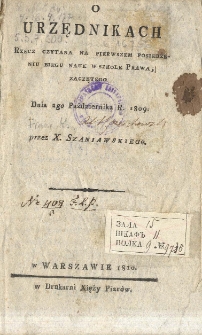 O
URZĘDNIKACH
RZECZ CZYTANA NA PIERWSZEM POSIEDZE-
NIU BIEGU NAUK W SZKOLE PRAWA,
ZACZĘTEGO
Dnia 2go Października R. 1809.
przez X. SZANIAWSKIEGO.
No 408
ЗАЛА 15
ШКАФЪ II
ПОЛКА 9
w WARSZAWIE 1810.
w Drukarni Xięży Piarów.